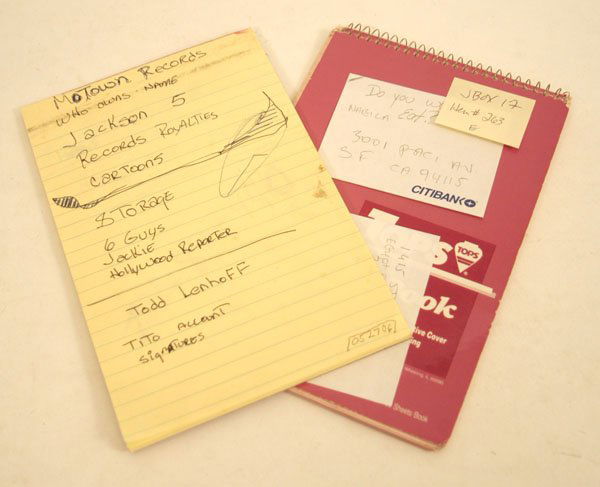 MOTOWN RECORDS
WHO OWNS NAME
JACKSON 5
RECORDS ROYALTIES
CARTOONS
STORAGE
6 GUYS
JACKIE
HOLLYWOOD REPORTER
Todd Lenhoff
TITO ACCOUNT
SIGNATURES
052706
Do you
3001 PACI AV
SF CA 94115
CITIBANK
JBOX 17
Item # 263
E
1415
TOPS
TOPS
ok
ive Cover
ing
Sheets Book